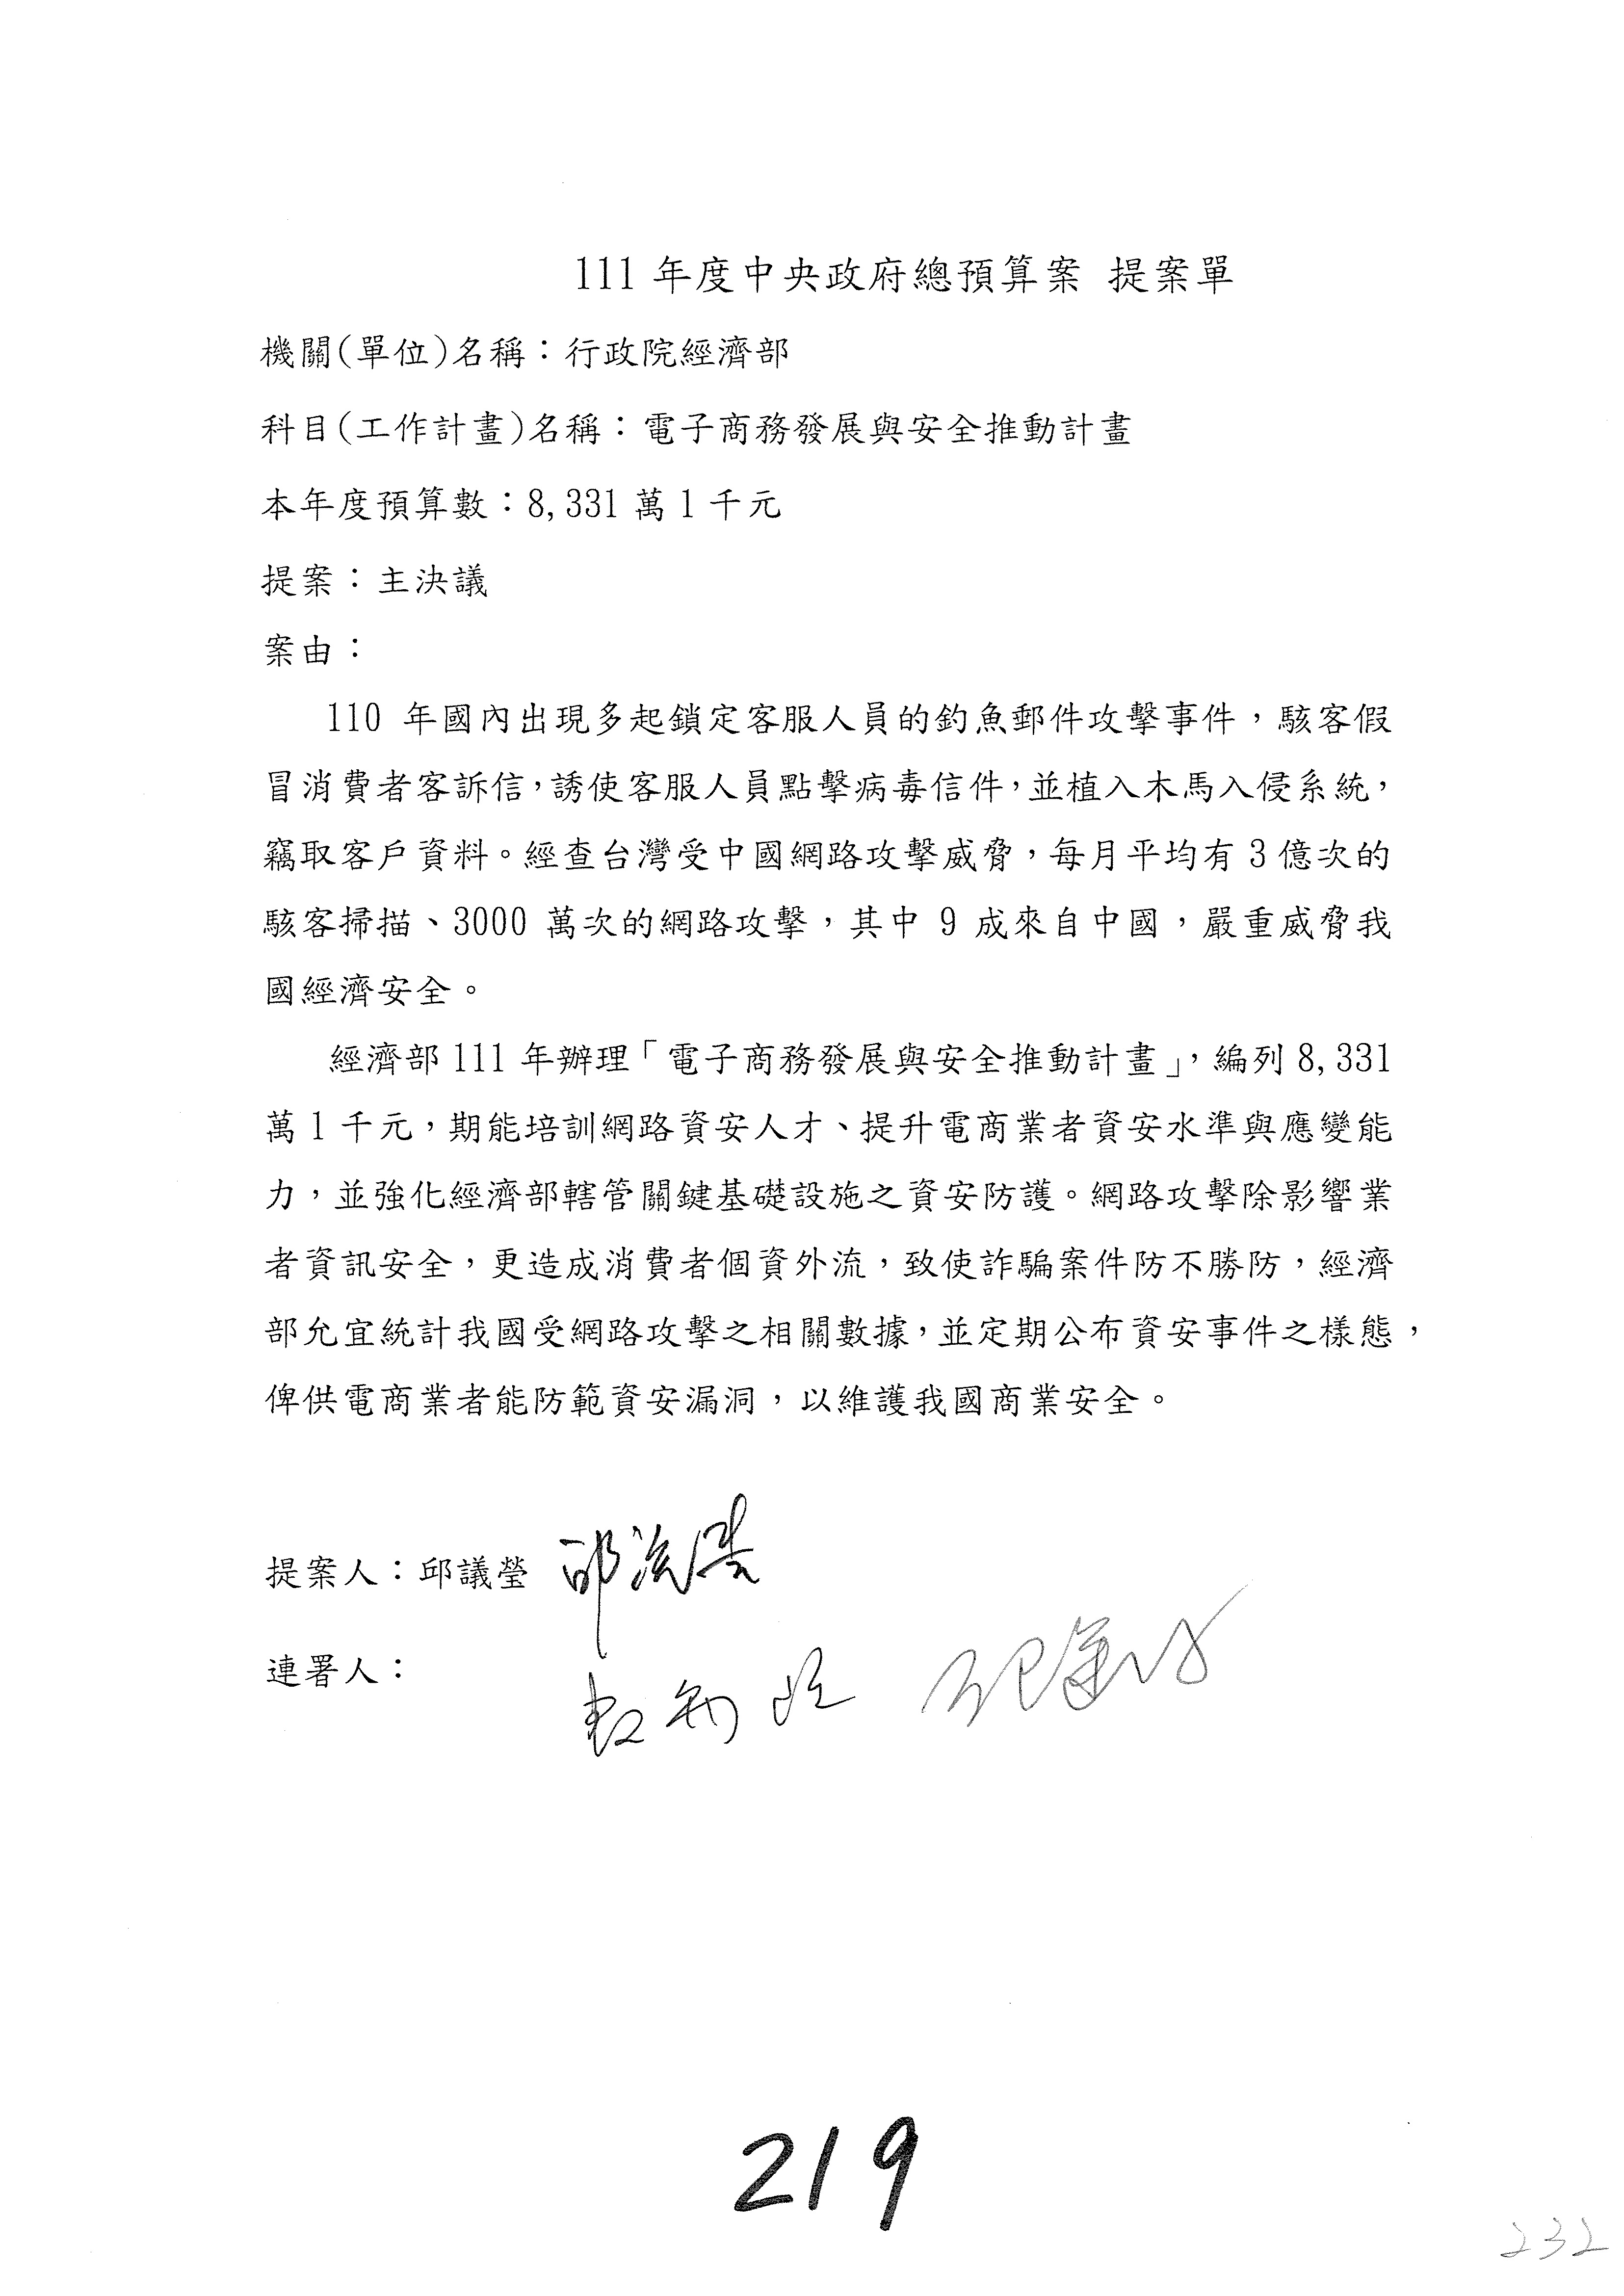 111 年度中央政府總預算案 提案單
機關(單位)名稱：行政院經濟部
科目(工作計畫)名稱：電子商務發展與安全推動計畫
本年度預算數：8,331 萬 1 千元
提案：主決議
案由：
110 年國內出現多起鎖定客服人員的釣魚郵件攻擊事件，駭客假
冒消費者客訴信，誘使客服人員點擊病毒信件，並植入木馬入侵系統，
竊取客戶資料。經查台灣受中國網路攻擊威脅，每月平均有 3 億次的
駭客掃描、3000 萬次的網路攻擊，其中 9 成來自中國，嚴重威脅我
國經濟安全。
經濟部 111 年辦理「電子商務發展與安全推動計畫」，編列 8,331
萬 1 千元，期能培訓網路資安人才、提升電商業者資安水準與應變能
力，並強化經濟部轄管關鍵基礎設施之資安防護。網路攻擊除影響業
者資訊安全，更造成消費者個資外流，致使詐騙案件防不勝防，經濟
部允宜統計我國受網路攻擊之相關數據，並定期公布資安事件之樣態，
俾供電商業者能防範資安漏洞，以維護我國商業安全。
提案人：邱議瑩 邱議瑩
連署人：
219
232